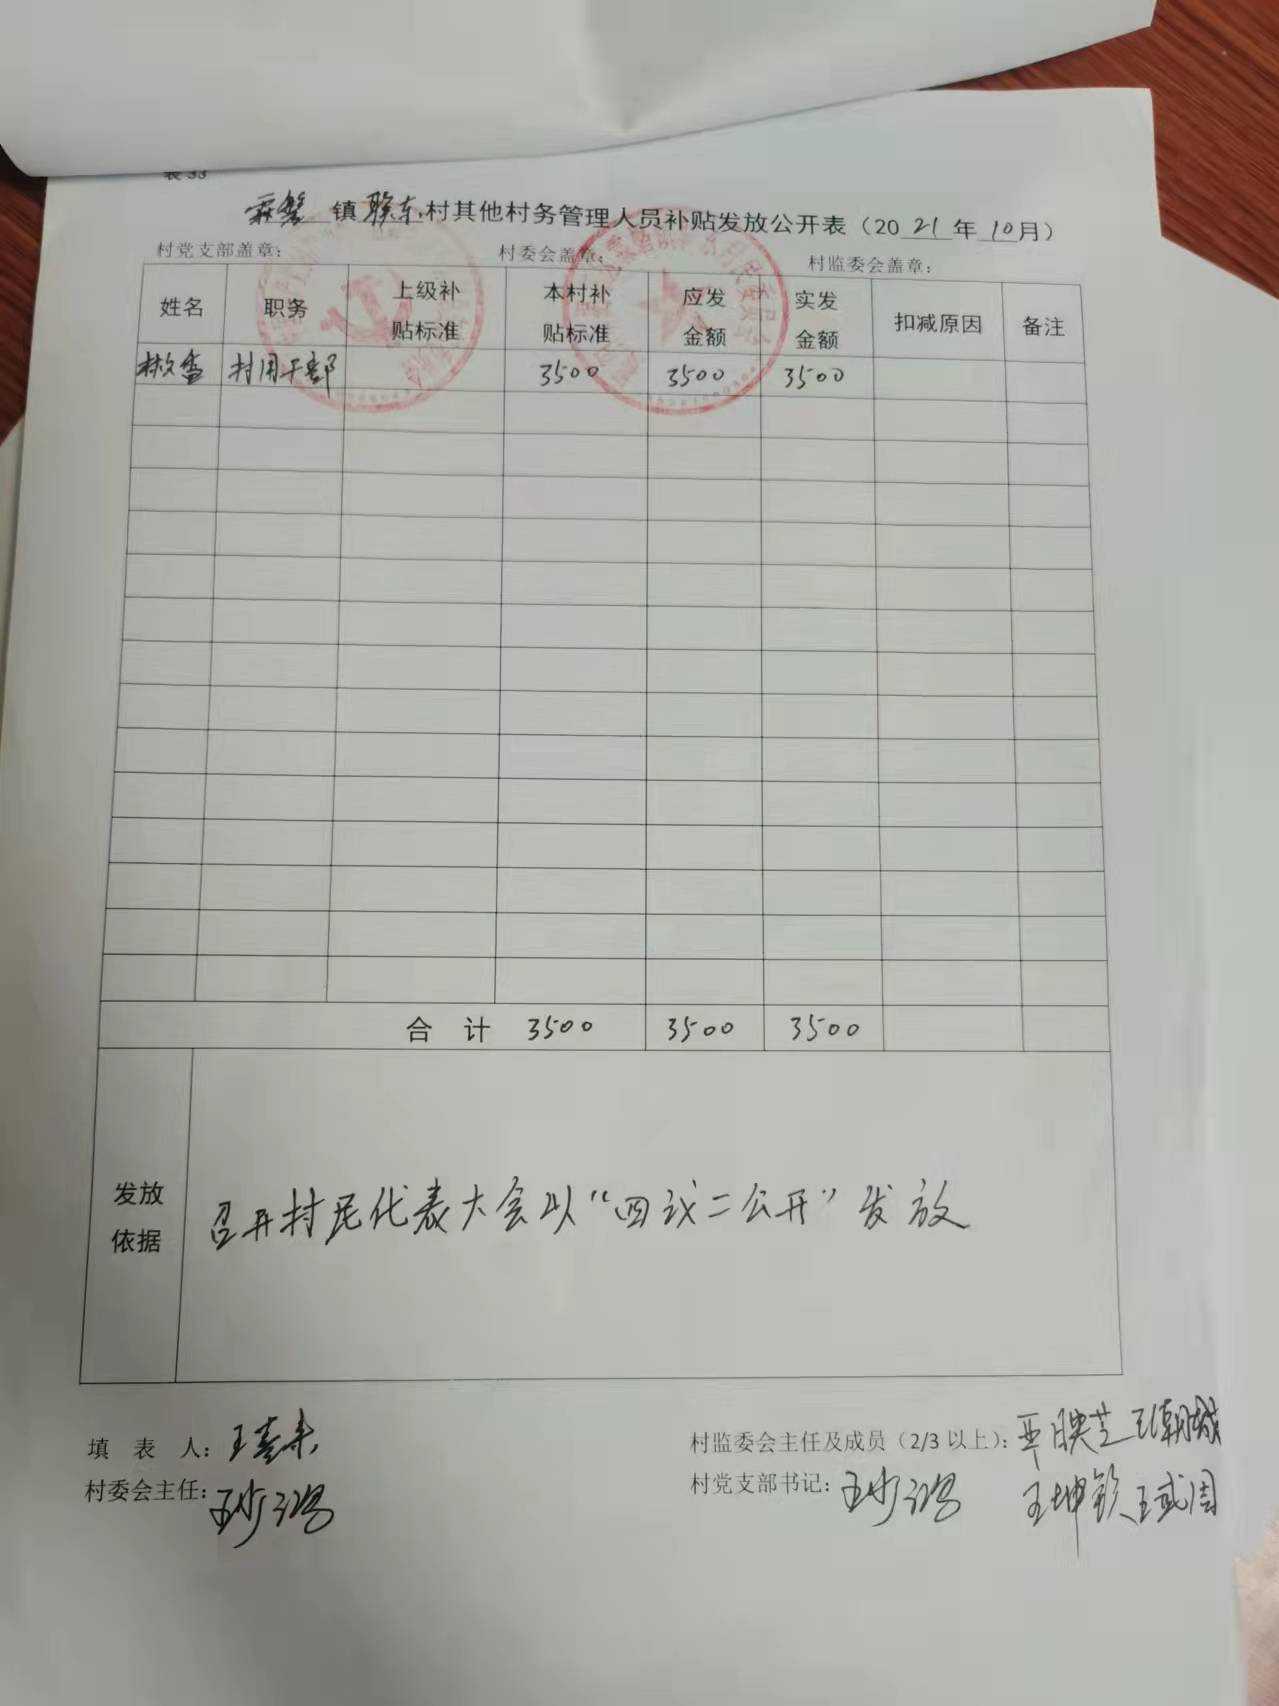 表 33
霖磐镇联东村其他村务管理人员补贴发放公开表（2021年10月）
村党支部盖章： 村委会盖章： 村监委会盖章：
姓名 职务 上级补贴标准 本村补贴标准 应发金额 实发金额 扣减原因 备注
村用干部 3500 3500 3500
合 计 3500 3500 3500
发放依据 召开村民代表大会以“四议二公开”发放
填 表 人： 村监委会主任及成员（2/3 以上）：
村委会主任： 村党支部书记：